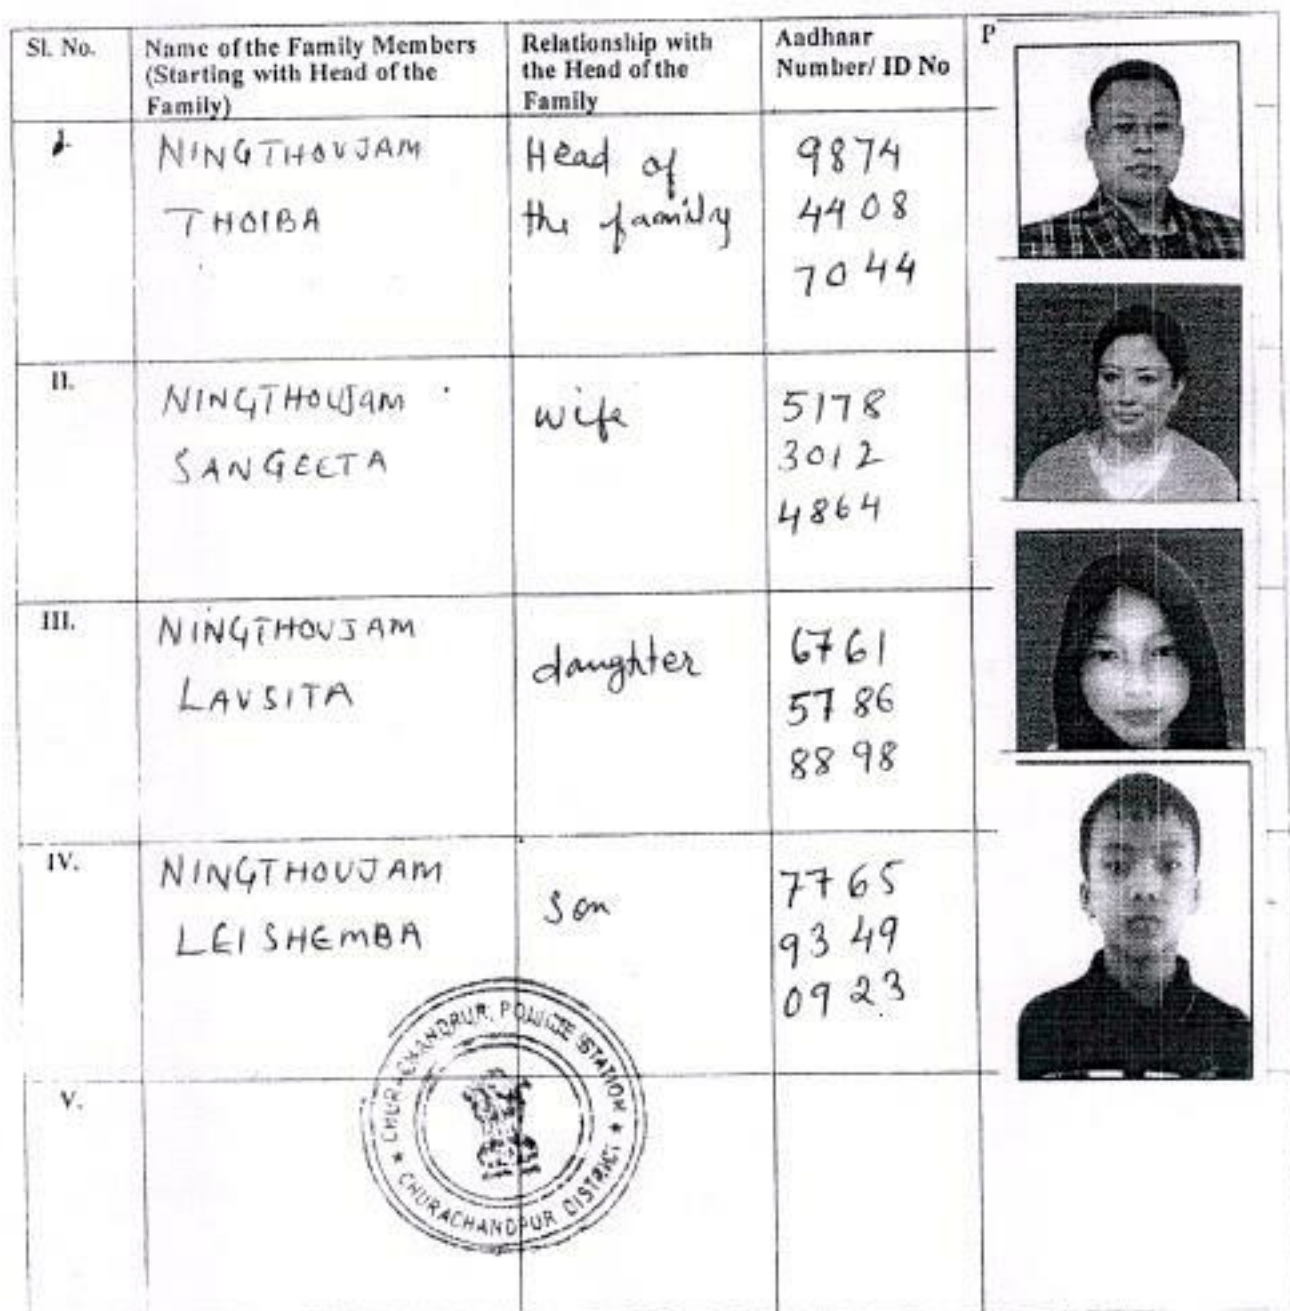 Sl. No.
Name of the Family Members
(Starting with Head of the
Family)
Relationship with
the Head of the
Family
Aadhaar
Number/ ID No
P
NINGTHOUJAM
THOIBA
Head of
the family
9874
4408
7044
II.
NINGTHOUJAM
SANGEETA
wife
5178
3012
4864
III.
NINGTHOUJAM
LAVSITA
daughter
6761
5786
8898
IV.
NINGTHOUJAM
LEISHEMBA
Son
7765
9349
0923
V.
CHURACHANDPUR POLICE STATION
CHURACHANDPUR DISTRICT